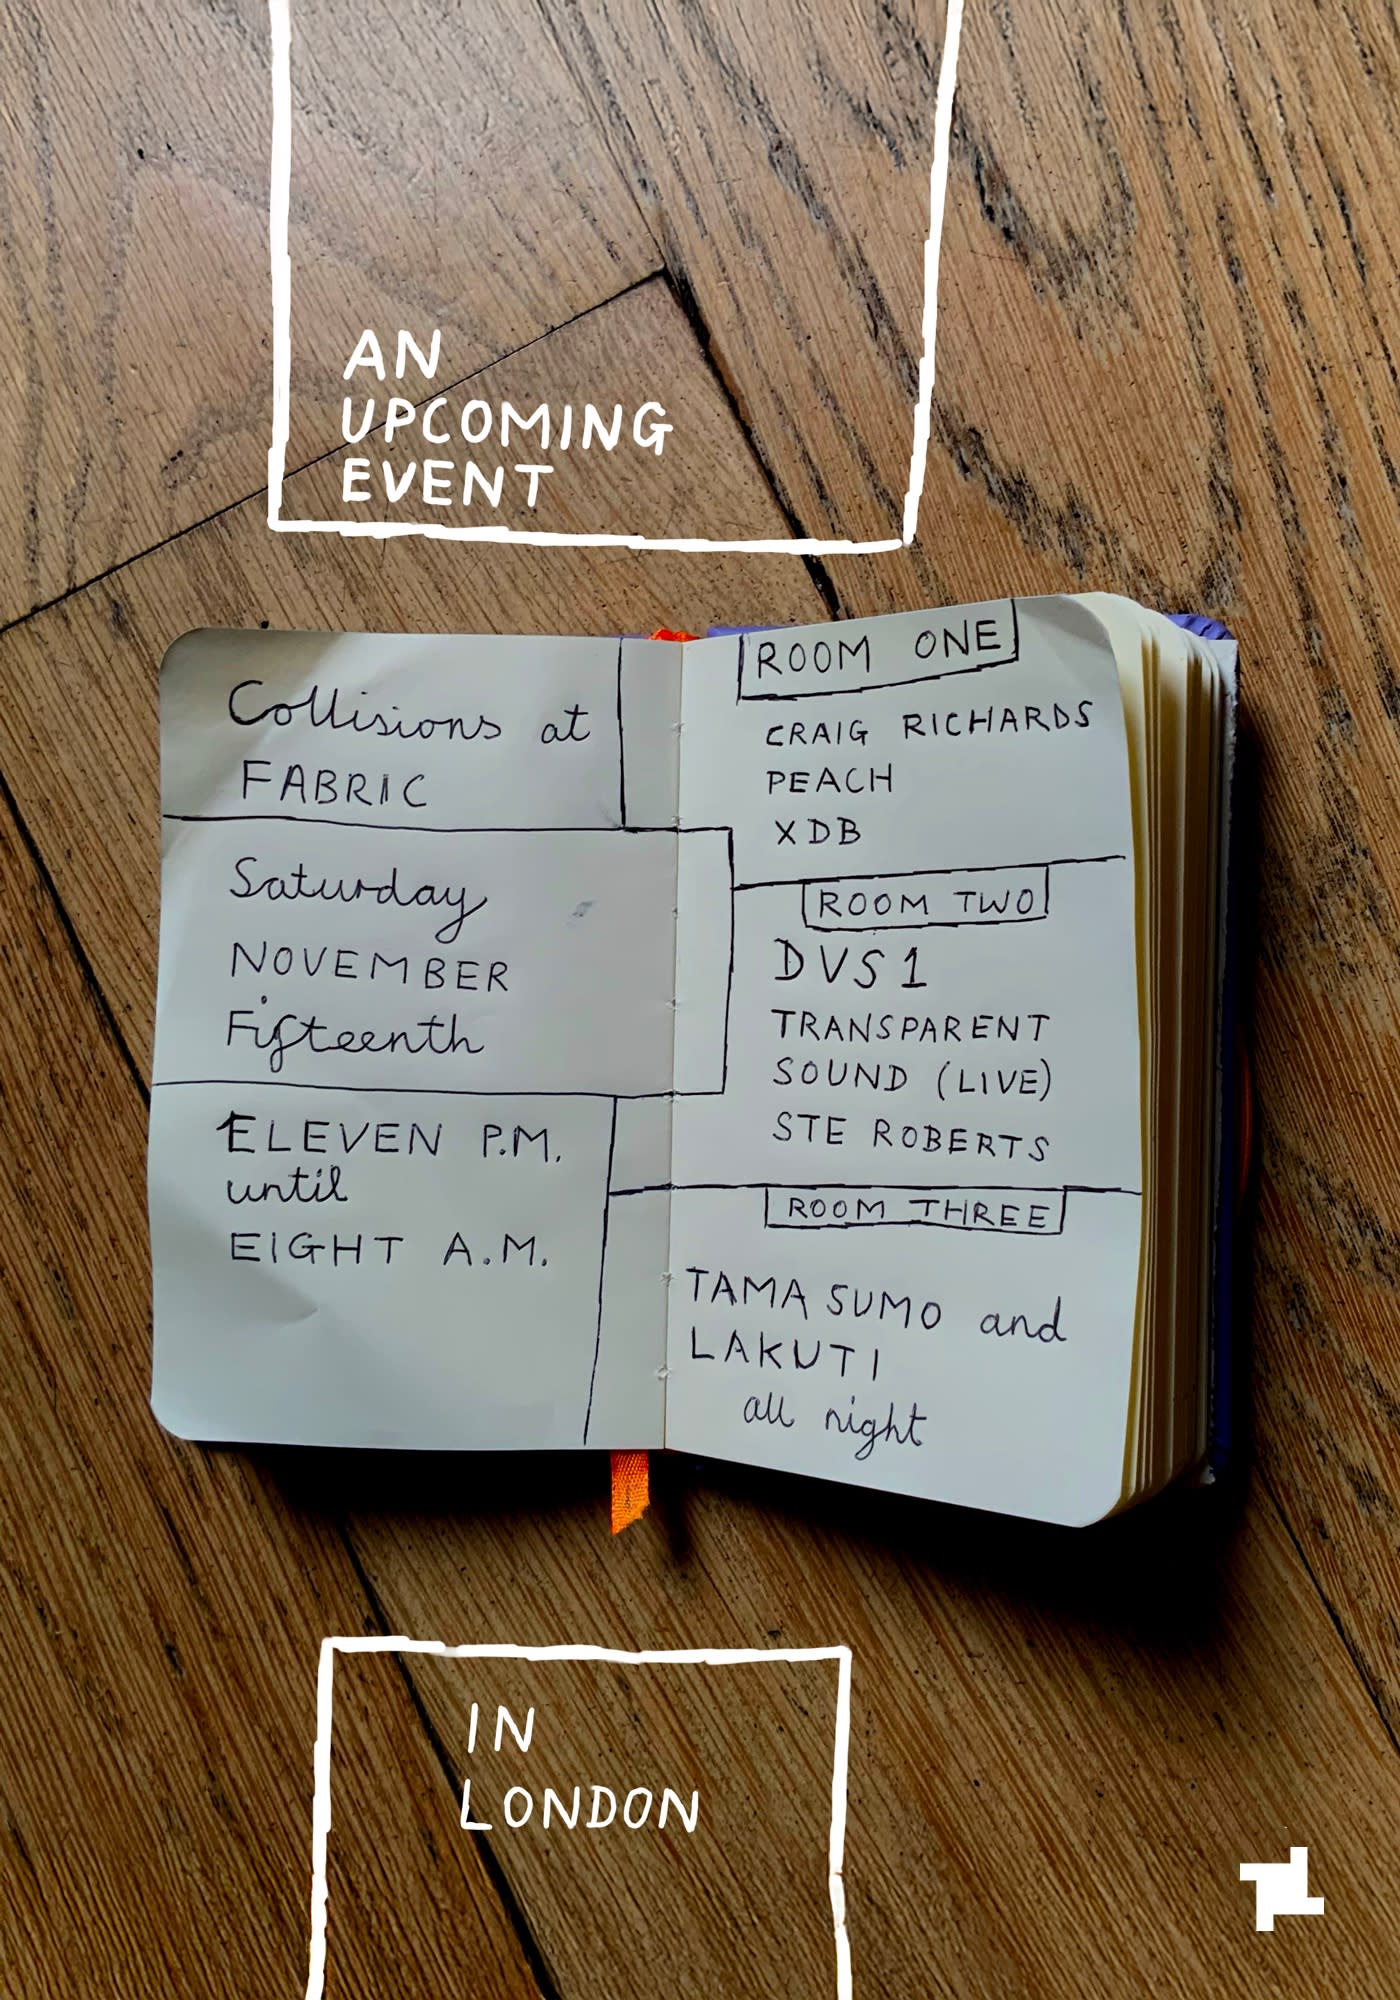 AN
UPCOMING
EVENT
Collisions at
FABRIC
Saturday
NOVEMBER
Fifteenth
ELEVEN P.M.
until
EIGHT A.M.
ROOM ONE
CRAIG RICHARDS
PEACH
XDB
ROOM TWO
DVS1
TRANSPARENT
SOUND (LIVE)
STE ROBERTS
ROOM THREE
TAMA SUMO and
LAKUTI
all night
IN
LONDON